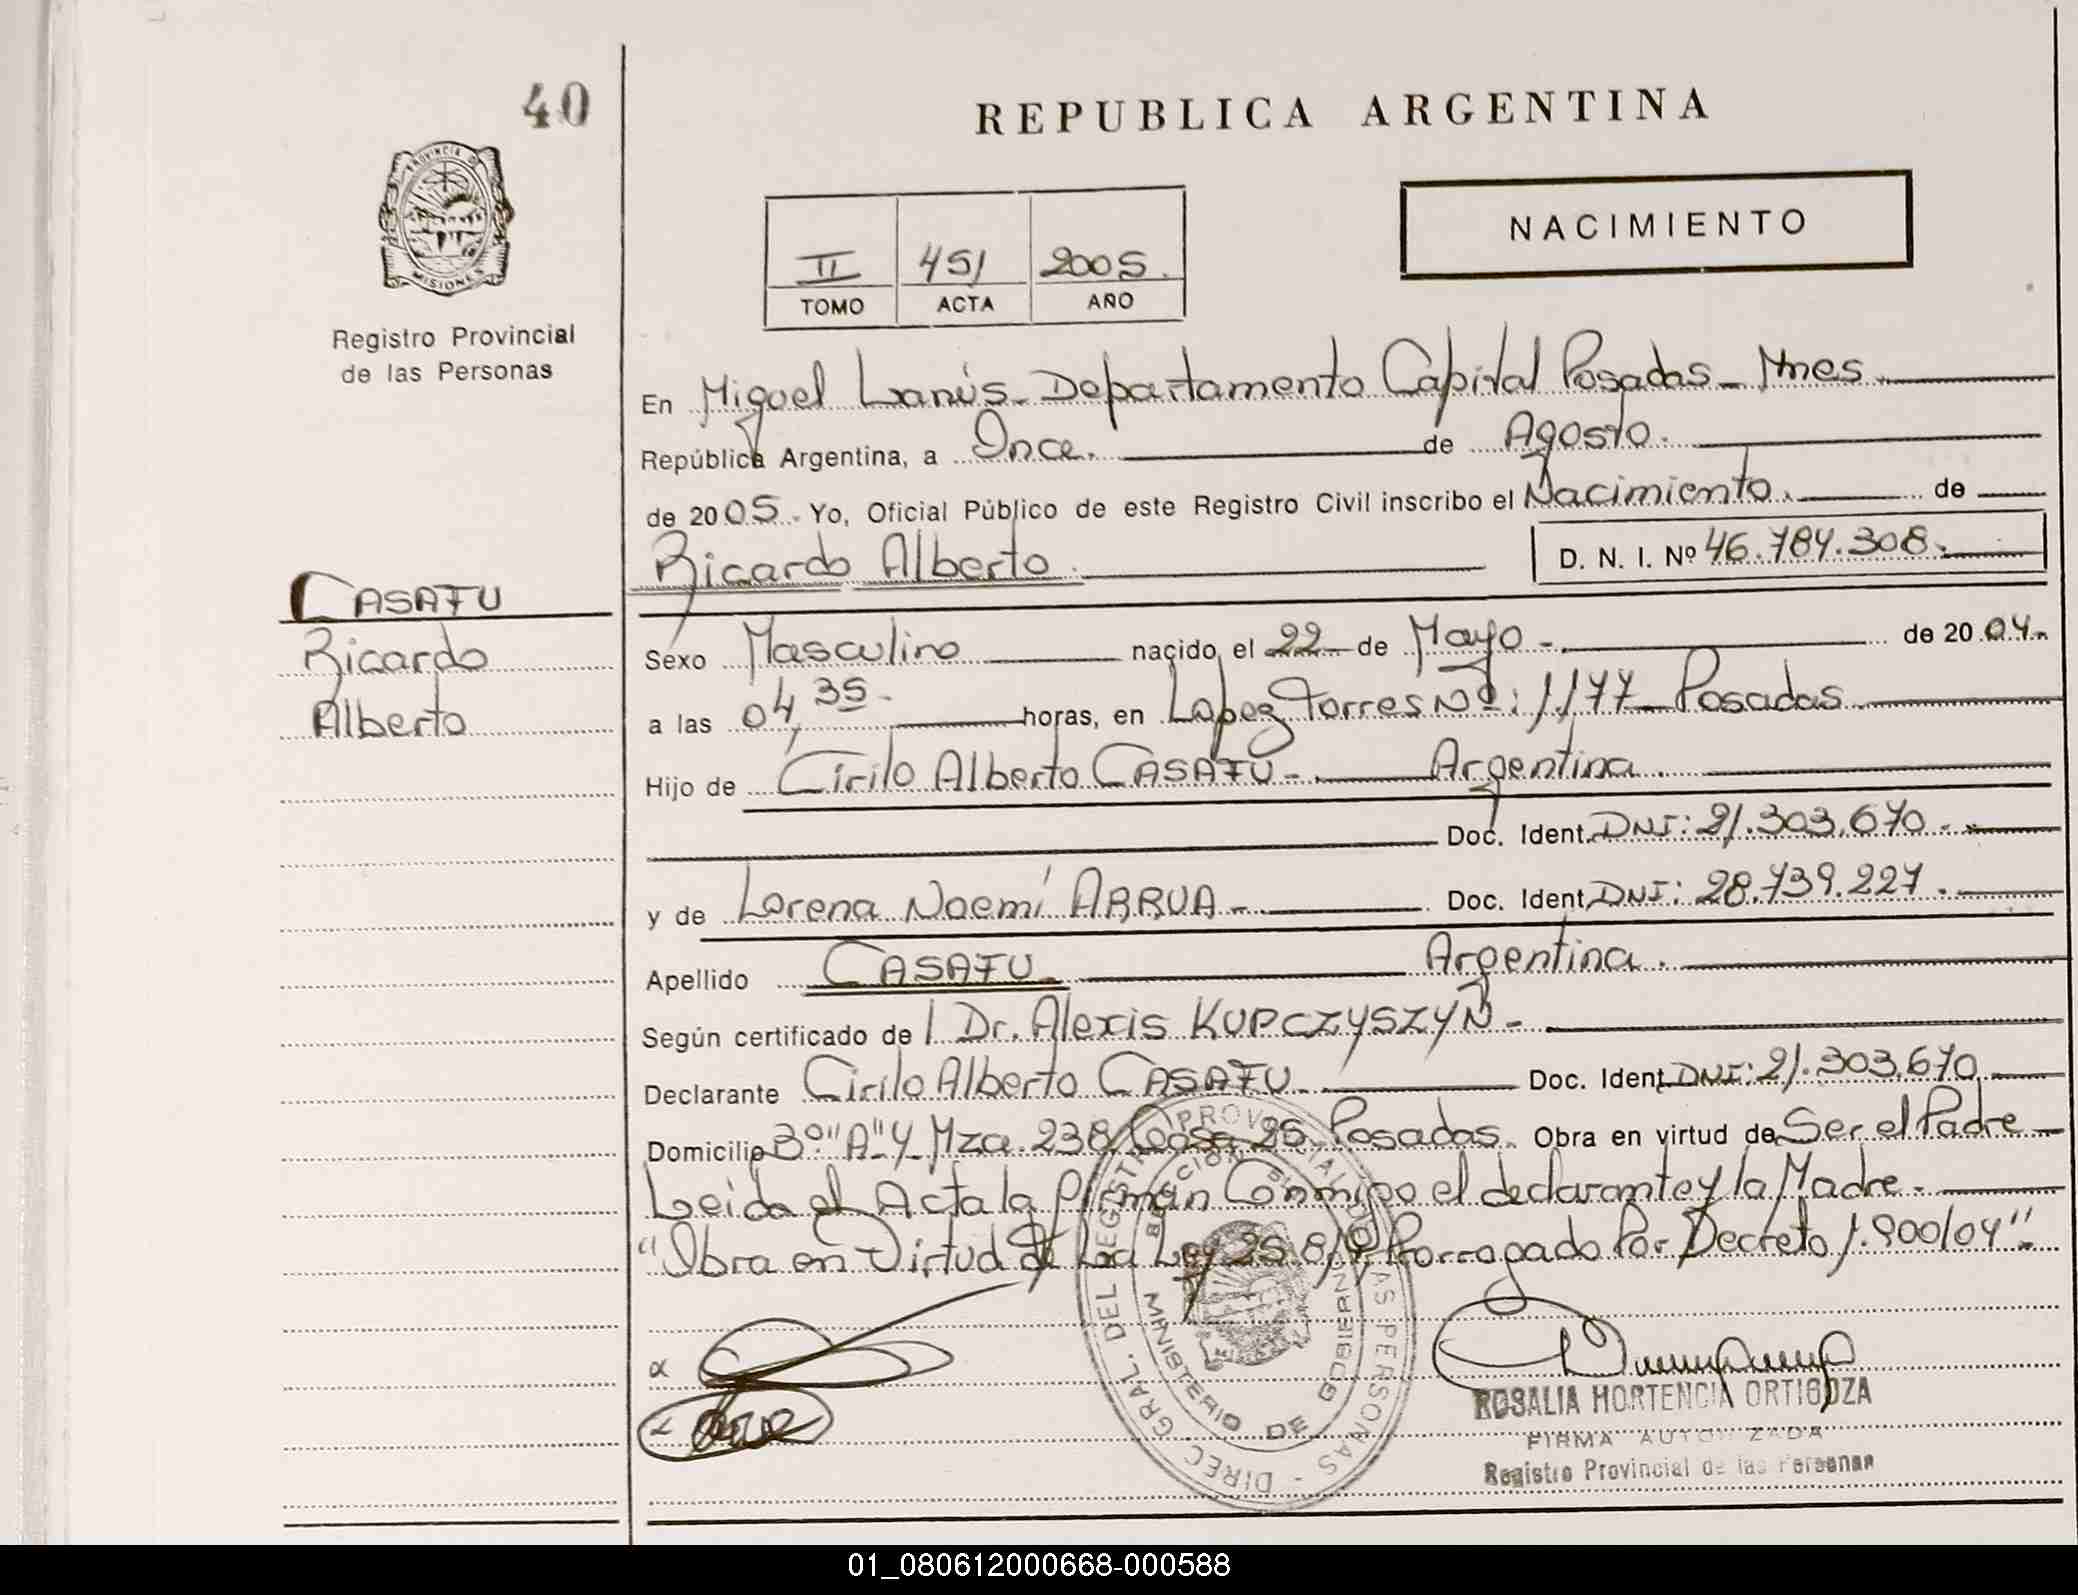 40
REPUBLICA ARGENTINA
PROVINCIA DE MISIONES
NACIMIENTO
II 451 2005.
TOMO ACTA AÑO
Registro Provincial
de las Personas
En Miguel Lanús - Departamento Capital Posadas - Mnes
República Argentina, a Once. de Agosto.
de 2005. Yo, Oficial Público de este Registro Civil inscribo el Nacimiento. de
Ricardo Alberto. D. N. I. Nº 46.784.308.
CASAFU
Ricardo
Alberto
Sexo Masculino nacido el 22 de Mayo - de 2004.
a las 04,35. horas, en Lopez Torres Nº: 1177 - Posadas
Hijo de Cirilo Alberto CASAFU - Argentina.
Doc. Ident. DNI: 21.303.670.-
y de Lorena Noemí ARRUA - Doc. Ident. DNI: 28.739.227.
Apellido CASAFU Argentina.
Según certificado de Dr. Alexis KUPCZYSZYN -
Declarante Cirilo Alberto CASAFU Doc. Ident. DNI: 21.303.670
Domicilio Bº "A" 4 Mza. 238 Casa 25 Posadas. Obra en virtud de Ser el Padre
Leida el Acta la firman Conmigo el declarante y la Madre.
"Obra en Virtud de La Ley 25.819 Prorrogado Por Decreto 1.900/04".
DIREC GRAL. DEL REGISTRO PROVINCIAL DE LAS PERSONAS
MINISTERIO DE GOBIERNO
ROSALIA HORTENCIA ORTIGOZA
FIRMA AUTORIZADA
Registro Provincial de las Personas
01_080612000668-000588